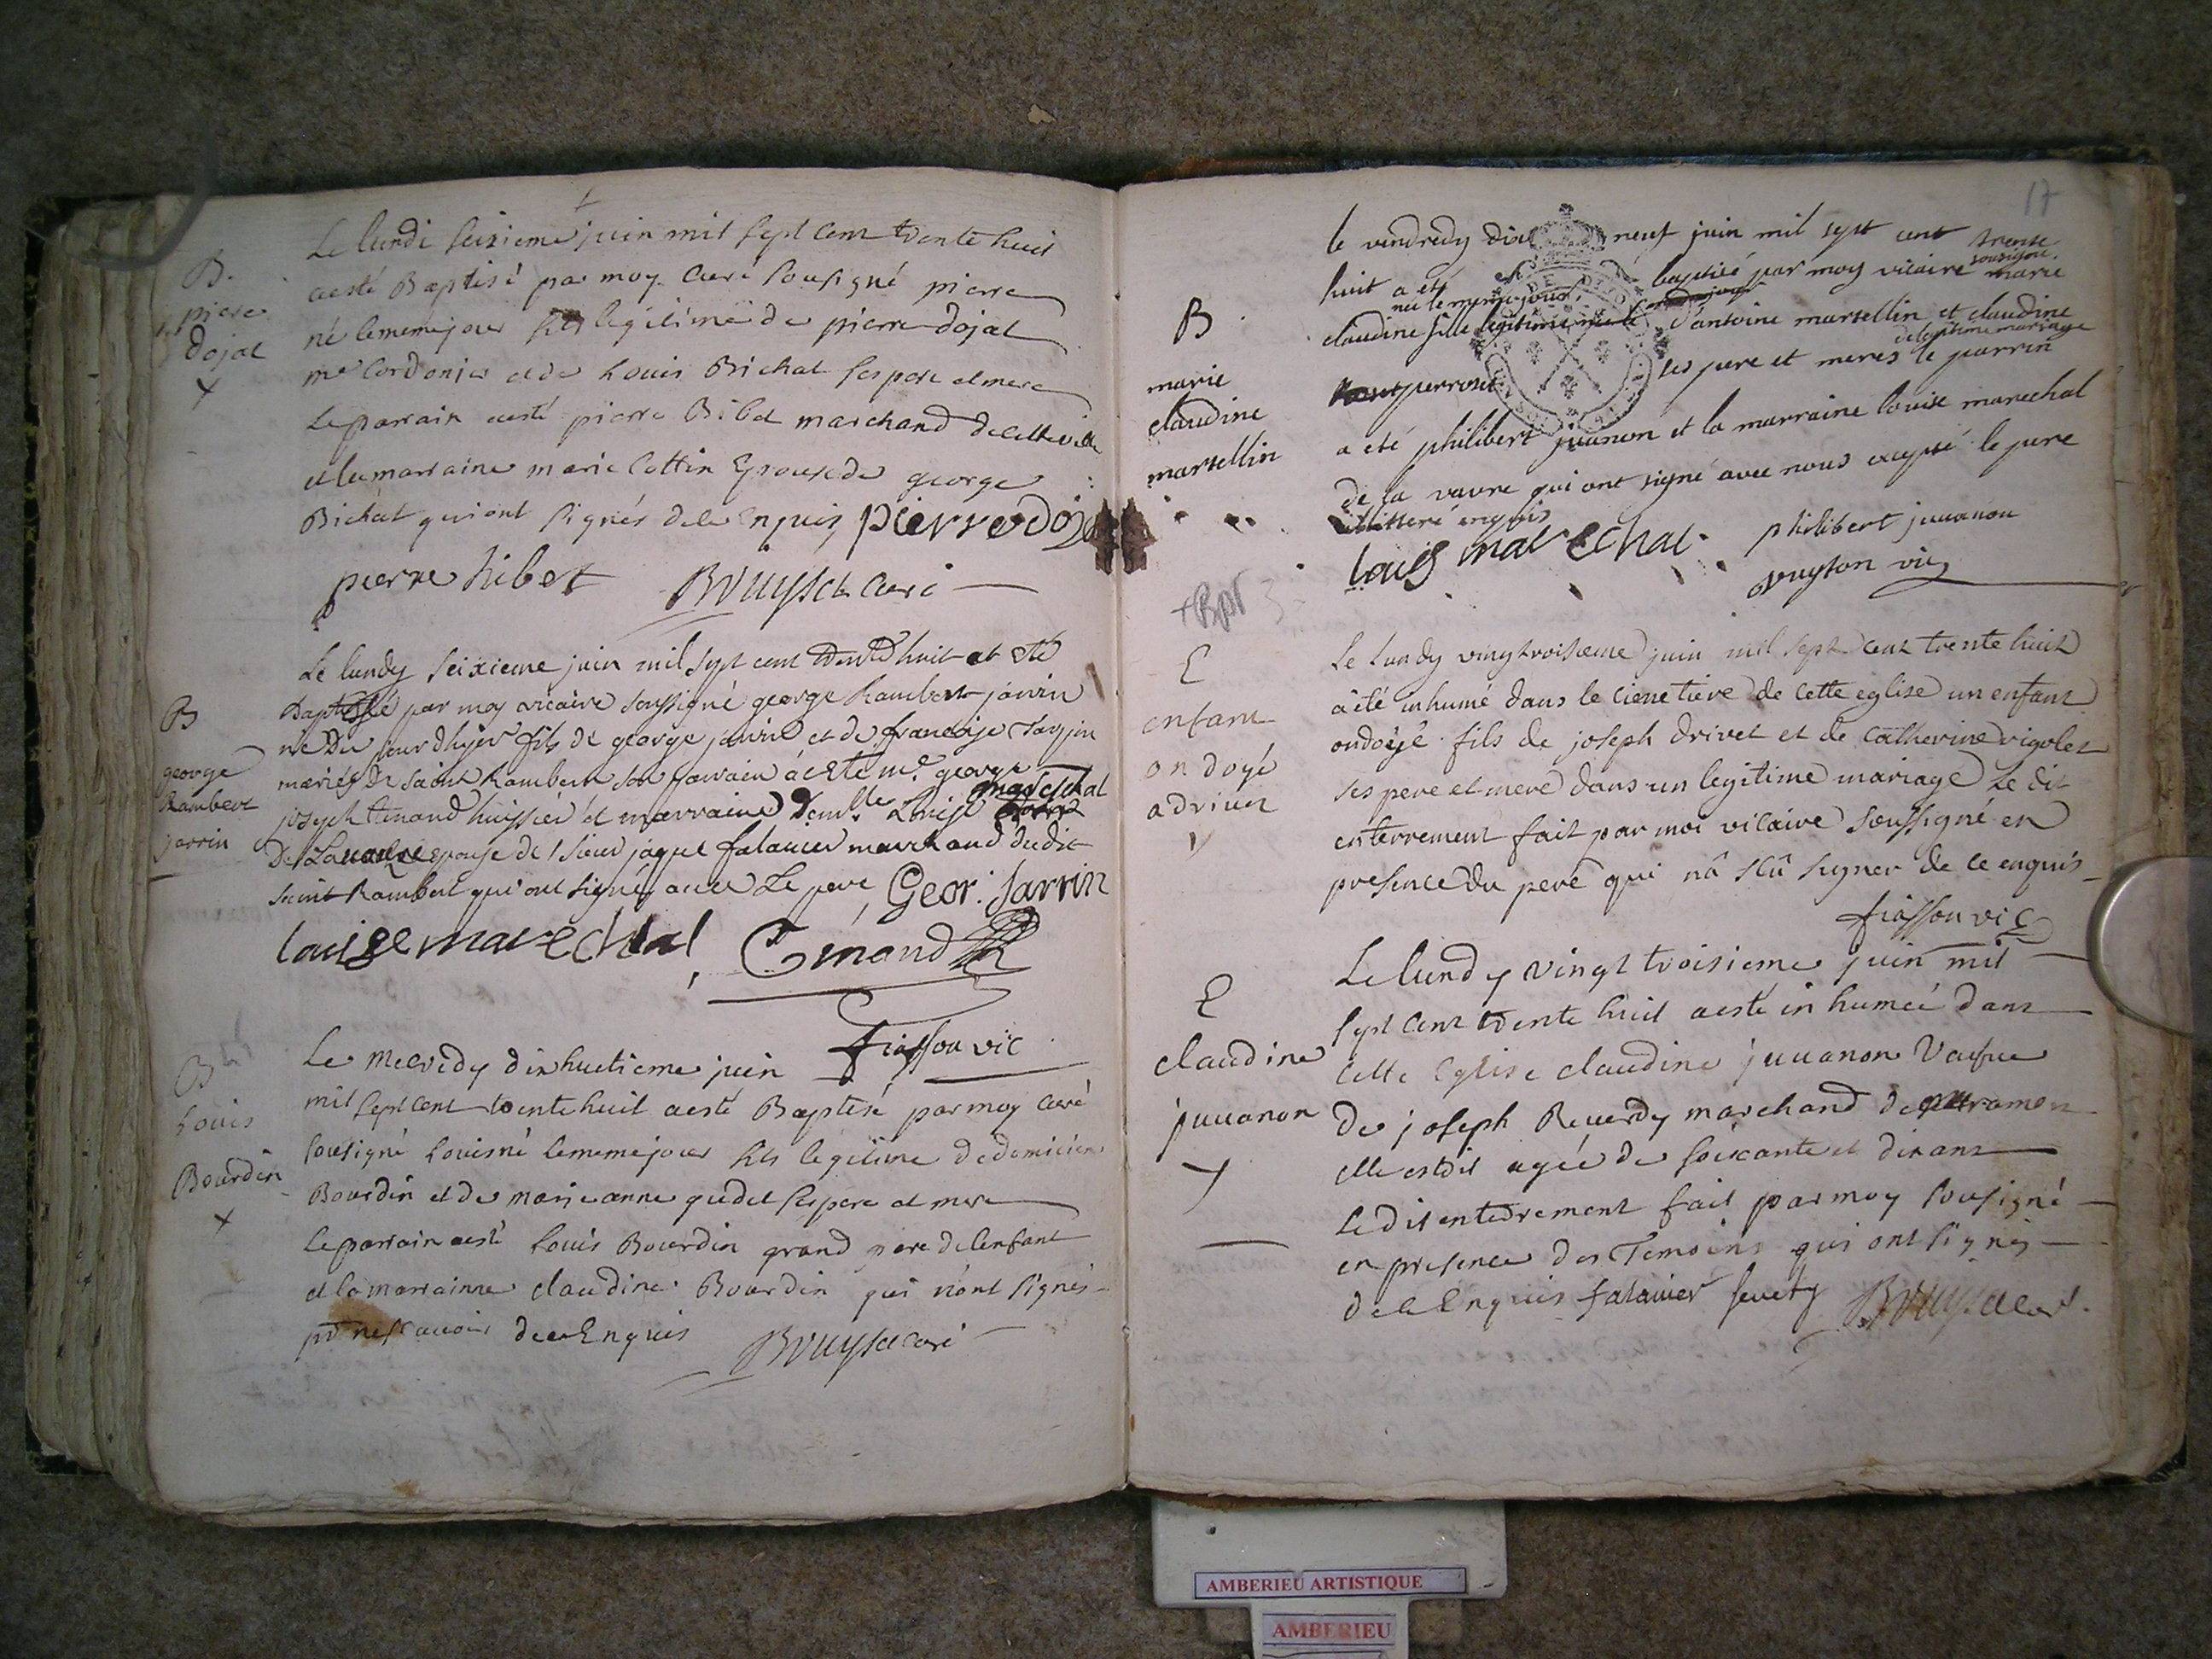 B.
pierre
dojat
Le lundi seizieme juin mil sept cent trente huit
a esté Baptisé par moy curé sousigné pierre
né le meme jour fils legitime de pierre dojat
me Cordonier et de Louis Bichat ses pere et mere
Le parrain a esté pierre Bibet marchand de cette ville
et la marraine marie Cottin Epouse de george
Bichat qui ont signés de ce Enquis pierre do
pierre hibet Bruyset curé
B
george
Rambert
jarrin
Le lundy seixieme juin mil sept cent trente huit at eté
baptissé par moy vicaire soussigné george Rambert jarrin
né du jour dhyer fils de george jarrin et de francoise
mariés de saint Rambert son parrain a eté me george
joseph Emand huissier et marraine demlle Louise mareschal
De Lavavre epouse de sieur jaque falavier marchand dudit
saint Rambert qui ont signé avec Le pere Geor. Jarrin
louise marechal Emand
fiasson vic
B
Louis
Bourdin
Le mecredy dix huetieme juin
mil sept cent trente huit a esté Baptisé par moy curé
sousigné Louis né le meme jour fils legitime de
Bourdin et de marie anne gudet ses pere et mere
Le parrain a esté Louis Bourdin grand pere de lenfant
et la marrainne claudine Bourdin qui n'ont signés
pr ne scavoir de ce Enquis Bruyset curé
17
B
marie
claudine
martellin
le vendredy dix neuf juin mil sept cent trente
huit a eté baptisé par moy vicaire sousigné marie
née le meme jour
claudine fille legitime d'antoine martellin et claudine
de legitime mariage
perroset ses pere et meres le parrin
a eté philibert juvanon et la marraine louise marechal
de la vavre qui ont signé avec nous excepté le pere
illitteré enquis
louis marechal philibert juvanon
vic
E
enfant
ondoyé
a drivet
Le lundy vingt troisieme juin mil sept cent trente huit
à été inhumé dans le cimetiere de cette eglise un enfant
ondoyé fils de joseph drivet et de catherine rigolet
ses pere et mere dans un legitime mariage Le dit
enterrement fait par moi vicaire soussigné en
presence du pere qui nâ sçû signer de ce enquis
fiasson vic
E
claudine
juvanon
Le lundy vingt troisieme juin mil
sept cent trente huit a esté in humeé dans
cette Eglise claudine juvanon Vefve
de joseph Reverdy marchand de
elle estoit agée de soixante et dix ans
Le dit enterrement fait par moy sousigné
en presence des Temoins qui ont signés
de ce Enquis falavier Bruyset
AMBERIEU ARTISTIQUE
AMBERIEU